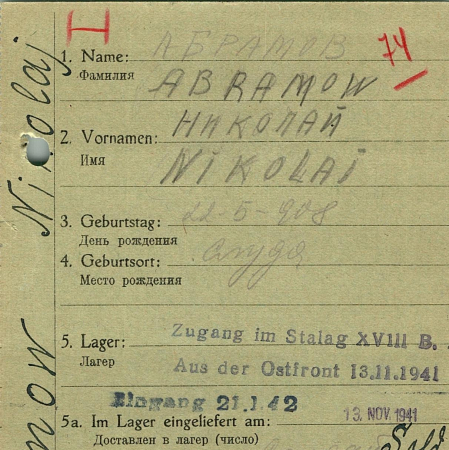 I
74
АБРАМОВ
1. Name:
Фамилия
ABRAMOW
НИКОЛАЙ
2. Vornamen:
Имя
NIKOLAI
3. Geburtstag: 22-5-908
День рождения
4. Geburtsort:
Место рождения
5. Lager: Zugang im Stalag XVIII B.
Лагер
Aus der Ostfront 13.11.1941
Eingang 21.1.42
5a. Im Lager eingeliefert am: 13. NOV. 1941
Доставлен в лагер (число)